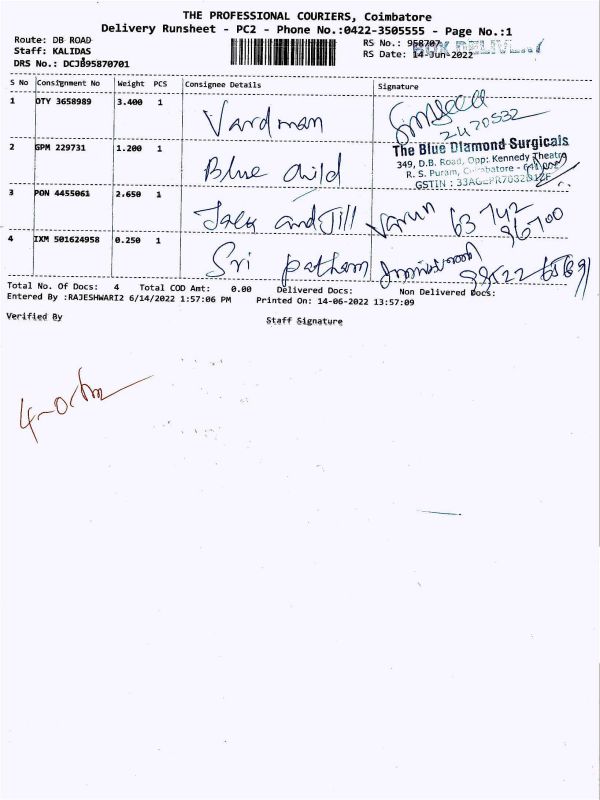 THE PROFESSIONAL COURIERS, Coimbatore
Delivery Runsheet - PC2 - Phone No.:0422-3505555 - Page No.:1
Route: DB ROAD
Staff: KALIDAS
DRS No.: DCJB95870701
RS No.: 958707
BOX DELIVERY
RS Date: 14-Jun-2022
S No Consignment No Weight PCS Consignee Details Signature
1 DTY 3658989 3.400 1 Vardman 2470532
2 GPM 229731 1.200 1 Blue child
The Blue Diamond Surgicals
349, D.B. Road, Opp: Kennedy Theatre
R. S. Puram, Coimbatore -
GSTIN :
3 PON 4455061 2.650 1 Jack and Jill Varun 63 742 96700
4 IXM 501624958 0.250 1 Sri patham
Total No. Of Docs: 4 Total COD Amt: 0.00 Delivered Docs: Non Delivered Docs:
Entered By :RAJESHWARI2 6/14/2022 1:57:06 PM Printed On: 14-06-2022 13:57:09
Verified By Staff Signature